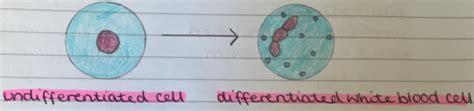 undifferentiated cell
differentiated white blood cell